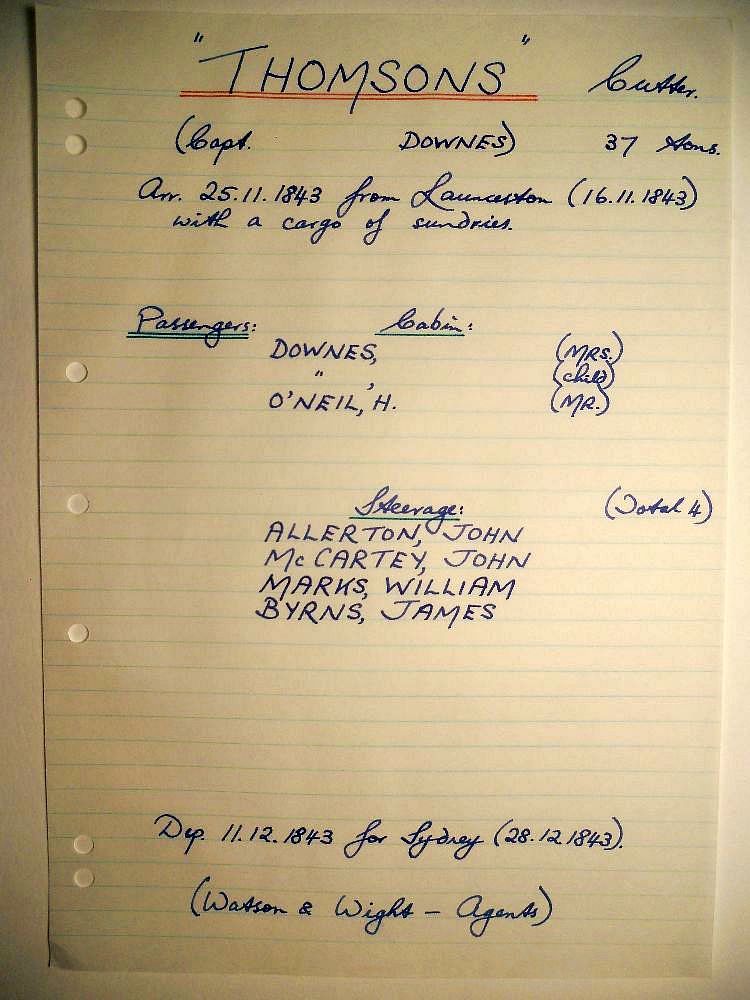 "THOMSONS" Cutter.
(Capt. DOWNES) 37 tons.
Arr. 25.11.1843 from Launceston (16.11.1843)
with a cargo of sundries.
Passengers: Cabin:
DOWNES, (MRS.)
" , (child)
O'NEIL, H. (MR.)
Steerage: (Total 4)
ALLERTON, JOHN
McCARTEY, JOHN
MARKS, WILLIAM
BYRNS, JAMES
Dep. 11.12.1843 for Sydney (28.12.1843).
(Watson & Wight - Agents)